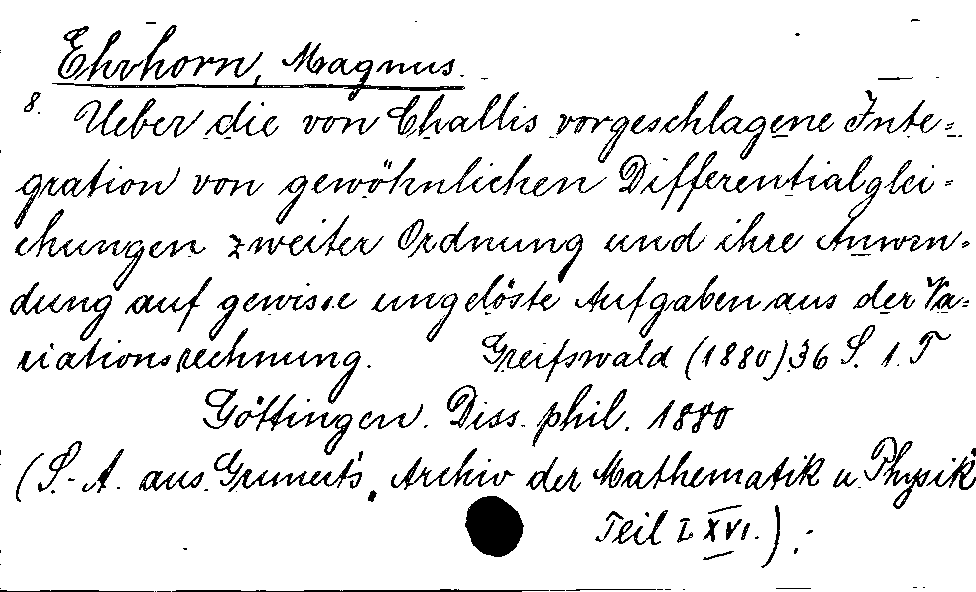 Ehrhorn, Magnus.
8. Ueber die von Challis vorgeschlagene Inte-
gration von gewöhnlichen Differentialglei-
chungen zweiter Ordnung und ihre Anwen-
dung auf gewisse ungelöste Aufgaben aus der Va-
riationsrechnung. Greifswald (1880) 36 S. 1. T
Göttingen. Diss. phil. 1880
(S.-A. aus Grunert's Archiv der Mathematik u. Physik
Teil LXVI.)